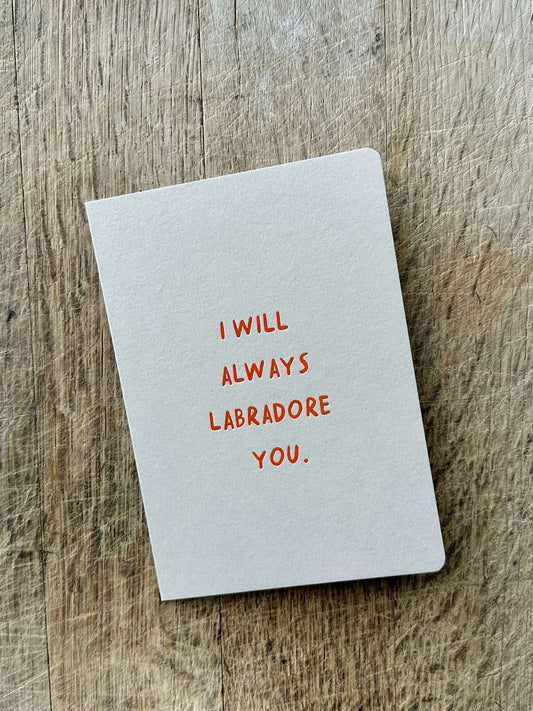 I WILL
ALWAYS
LABRADORE
YOU.